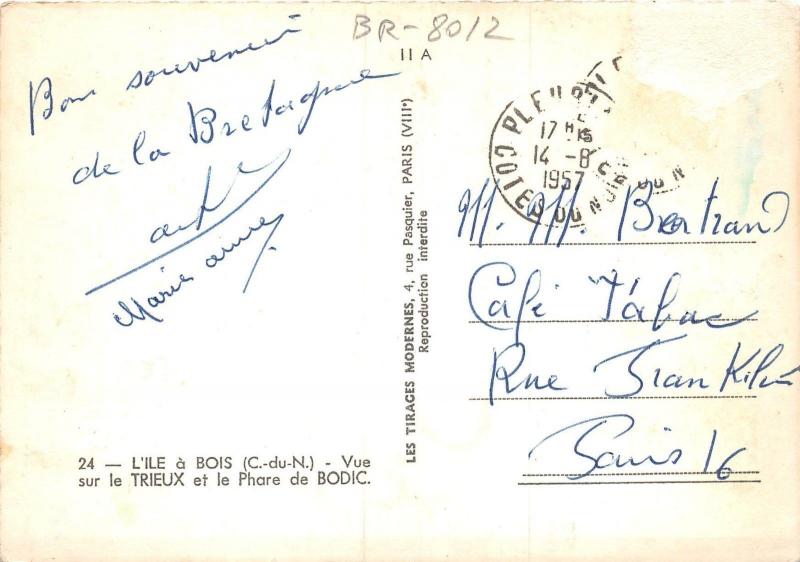 BR-8012
II A
Bon souvenir
de la Bretagne
Marie
24 — L'ILE à BOIS (C.-du-N.) - Vue
sur le TRIEUX et le Phare de BODIC.
LES TIRAGES MODERNES, 4, rue Pasquier, PARIS (VIIIᵉ)
Reproduction interdite
17 H 15
14 -8
1957
COTES DU NORD
M. M. Bertrand
Café Tabac
Rue Franklin
Paris 16